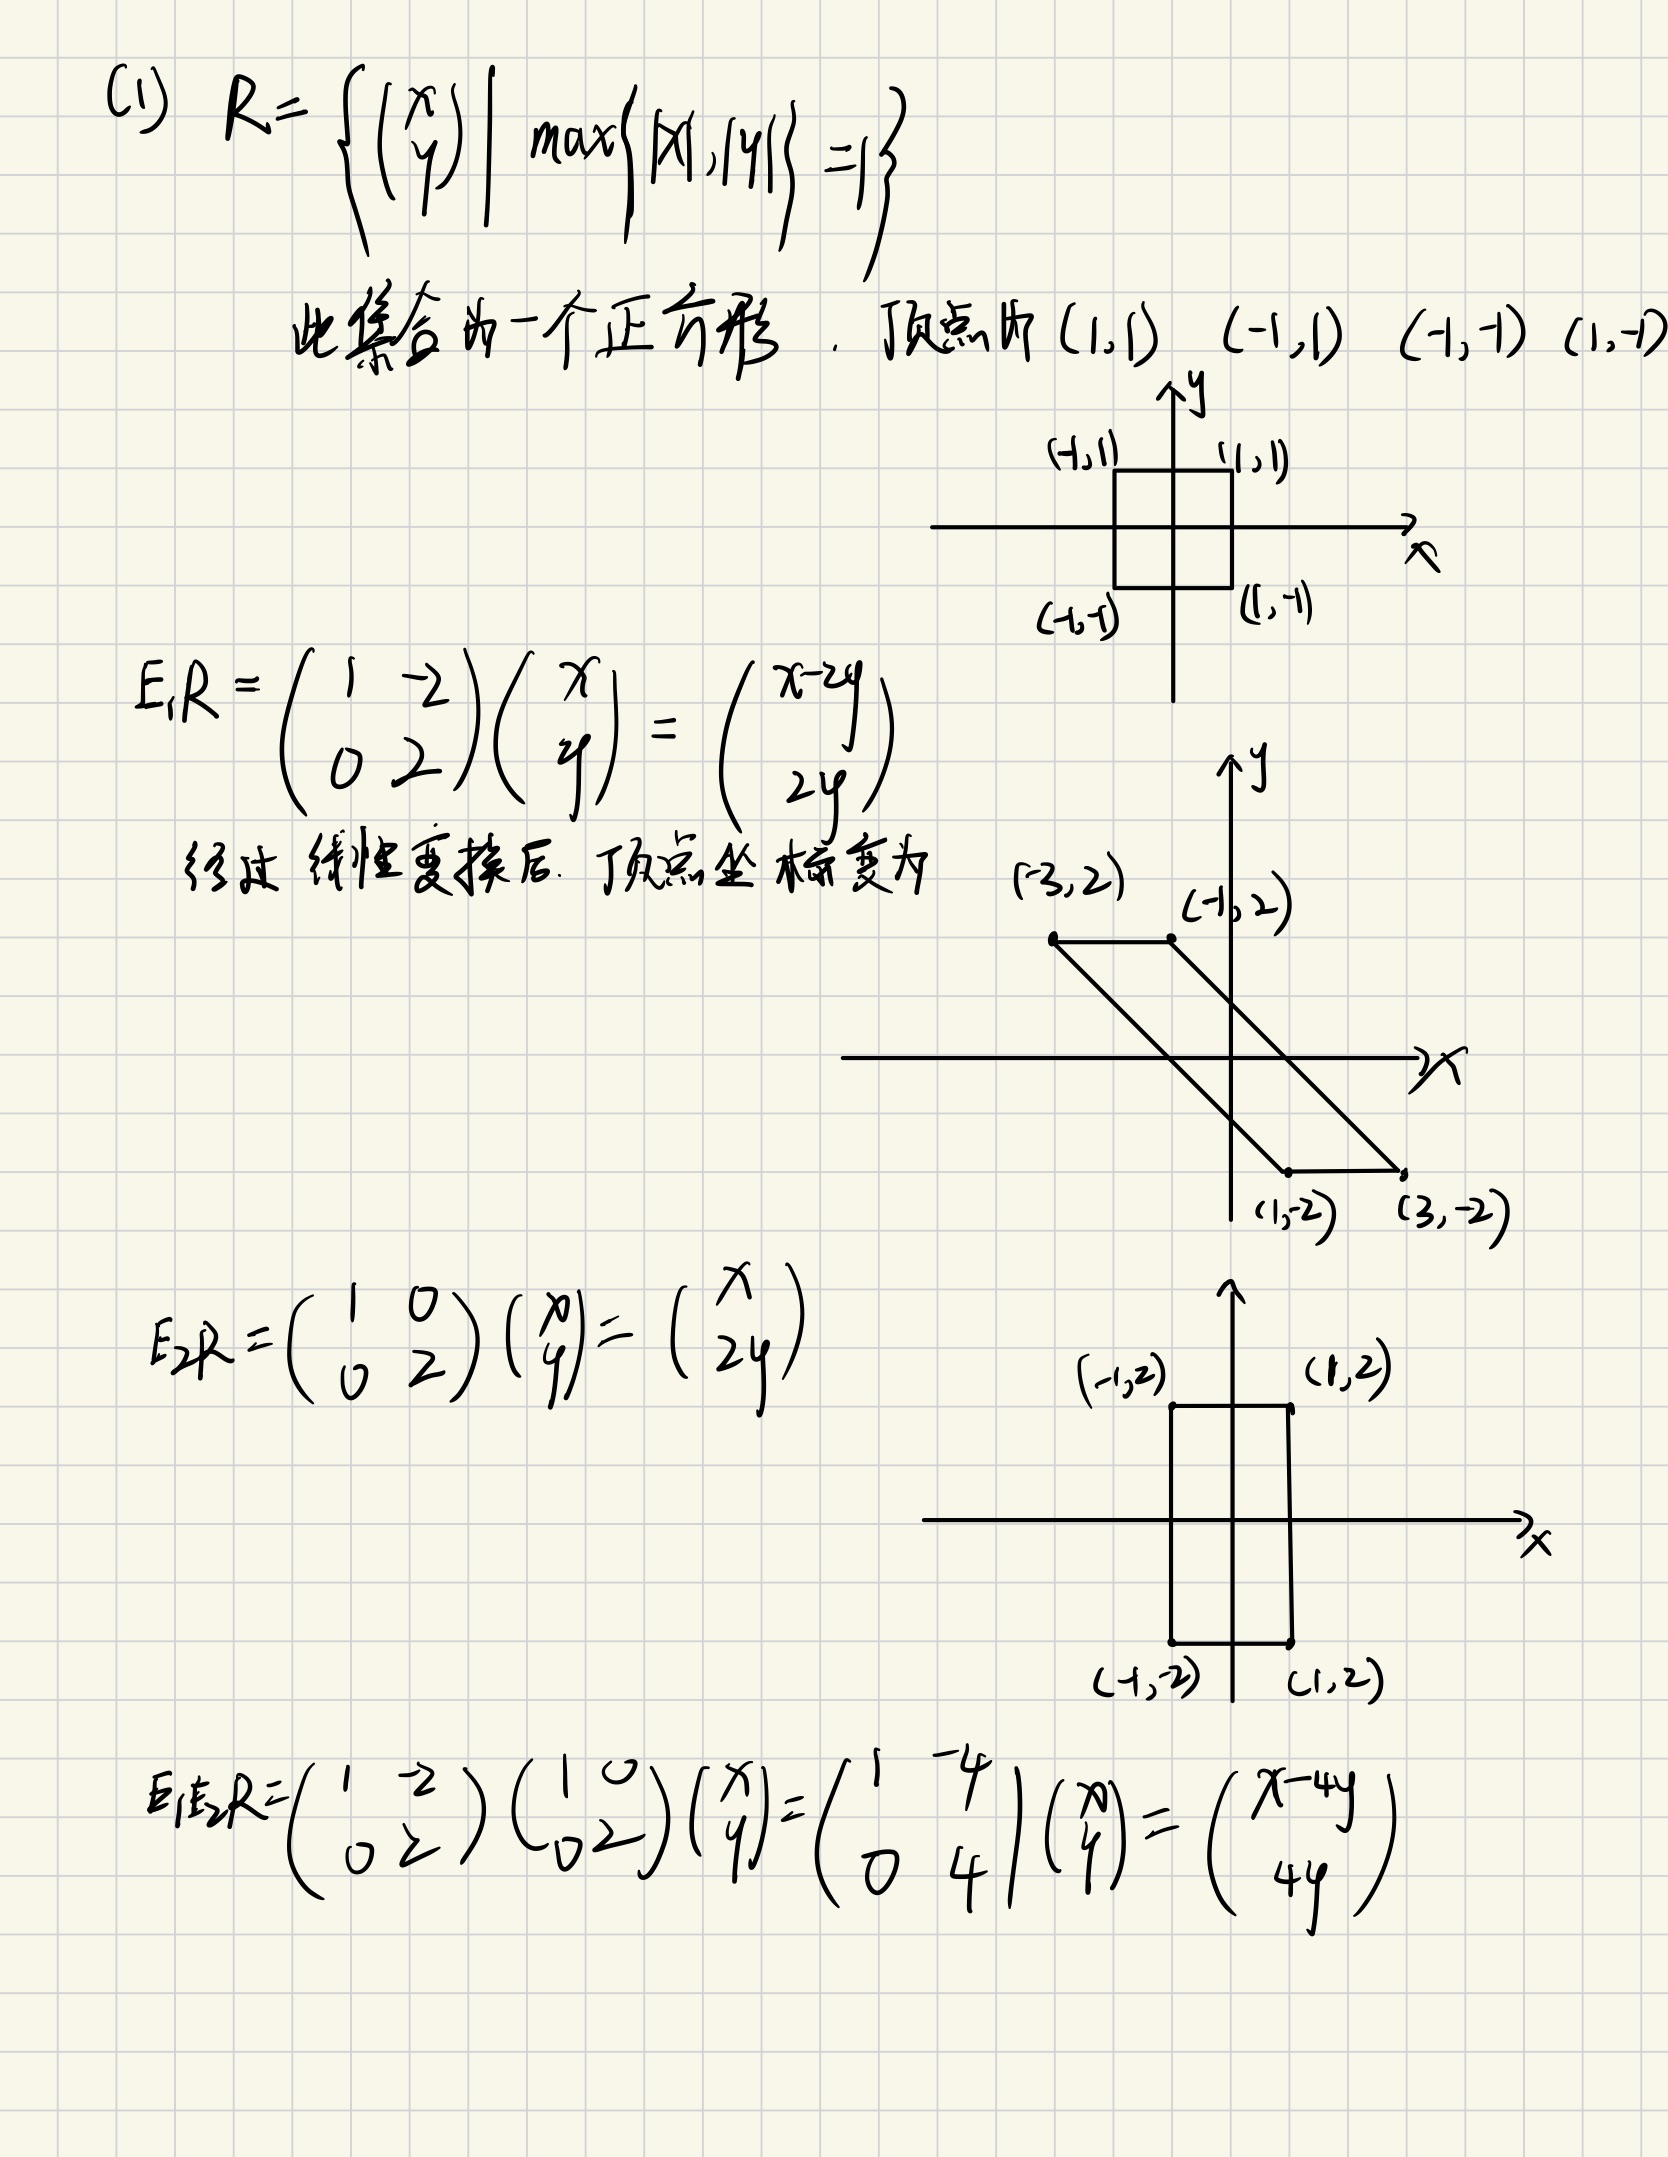 (1) R = { (x y) | max{|x|, |y|} = 1 }
此集合为一个正方形. 顶点为 (1,1) (-1,1) (-1,-1) (1,-1)
y
(-1,1) (1,1)
x
(-1,-1) (1,-1)
E₁R = (1 -2
0 2) (x
y) = (x-2y
2y)
经过线性变换后. 顶点坐标变为
y
(-3,2) (-1,2)
x
(1,-2) (3,-2)
E₂R = (1 0
0 2) (x
y) = (x
2y)
(-1,2) (1,2)
x
(-1,-2) (1,2)
E₁E₂R = (1 -2
0 2) (1 0
0 2) (x
y) = (1 -4
0 4) (x
y) = (x-4y
4y)